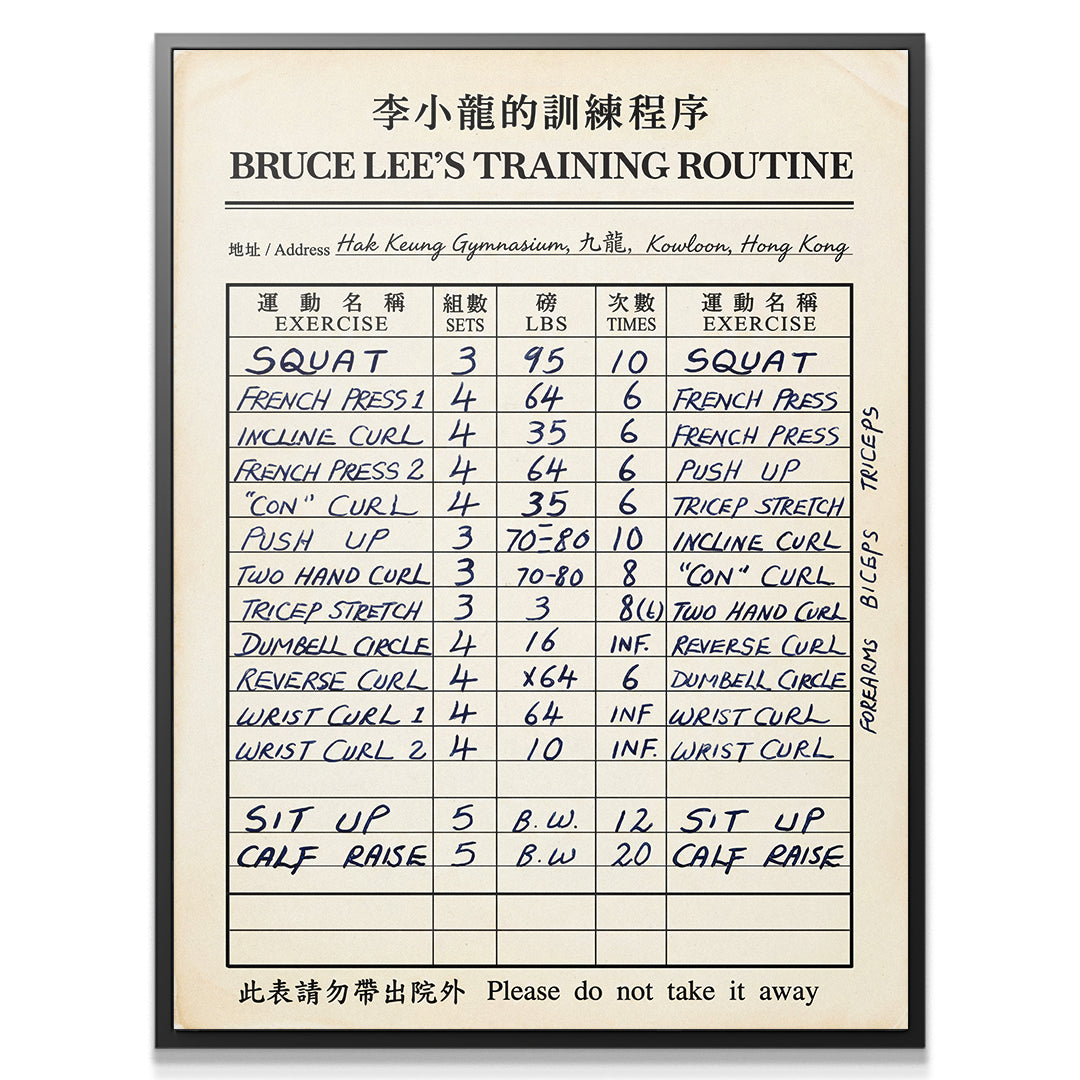 李小龍的訓練程序
BRUCE LEE'S TRAINING ROUTINE
地址 / Address Hak Keung Gymnasium, 九龍, Kowloon, Hong Kong
運動名稱 組數 磅 次數 運動名稱
EXERCISE SETS LBS TIMES EXERCISE
SQUAT 3 95 10 SQUAT
FRENCH PRESS 1 4 64 6 FRENCH PRESS
INCLINE CURL 4 35 6 FRENCH PRESS
FRENCH PRESS 2 4 64 6 PUSH UP
"CON" CURL 4 35 6 TRICEP STRETCH
PUSH UP 3 70-80 10 INCLINE CURL
TWO HAND CURL 3 70-80 8 "CON" CURL
TRICEP STRETCH 3 3 8(6) TWO HAND CURL
DUMBELL CIRCLE 4 16 INF. REVERSE CURL
REVERSE CURL 4 x64 6 DUMBELL CIRCLE
WRIST CURL 1 4 64 INF WRIST CURL
WRIST CURL 2 4 10 INF. WRIST CURL
SIT UP 5 B.W. 12 SIT UP
CALF RAISE 5 B.W 20 CALF RAISE
FOREARMS BICEPS TRICEPS
此表請勿帶出院外 Please do not take it away